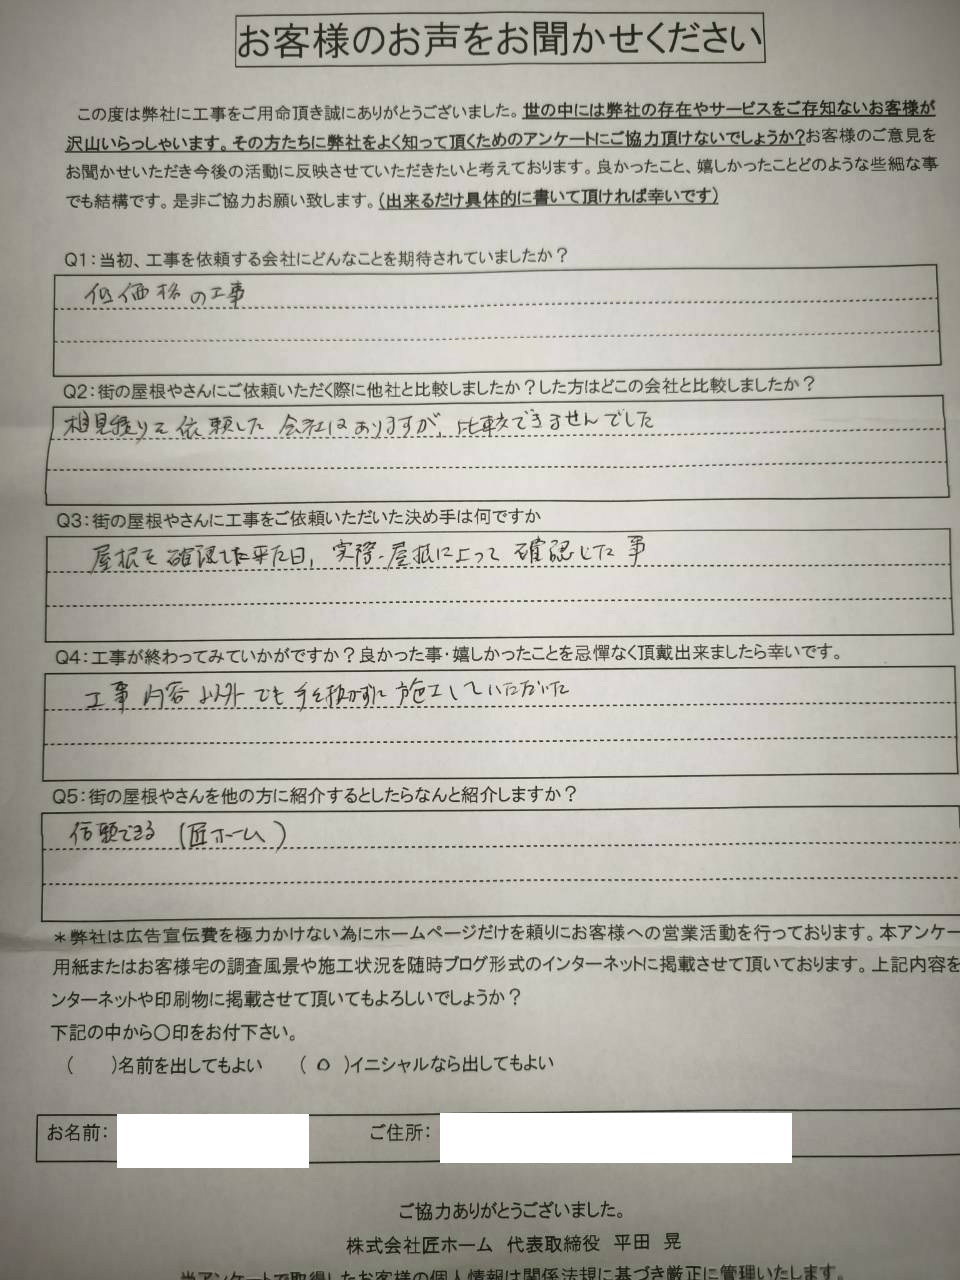 お客様のお声をお聞かせください
この度は弊社に工事をご用命頂き誠にありがとうございました。世の中には弊社の存在やサービスをご存知ないお客様が
沢山いらっしゃいます。その方たちに弊社をよく知って頂くためのアンケートにご協力頂けないでしょうか?お客様のご意見を
お聞かせいただき今後の活動に反映させていただきたいと考えております。良かったこと、嬉しかったことどのような些細な事
でも結構です。是非ご協力お願い致します。(出来るだけ具体的に書いて頂ければ幸いです)
Q1:当初、工事を依頼する会社にどんなことを期待されていましたか?
低価格の工事
Q2:街の屋根やさんにご依頼いただく際に他社と比較しましたか?した方はどこの会社と比較しましたか?
相見積りを依頼した会社はありますが、比較できませんでした
Q3:街の屋根やさんに工事をご依頼いただいた決め手は何ですか
屋根を確認した来た日、実際、屋根によって確認した事
Q4:工事が終わってみていかがですか?良かった事・嬉しかったことを忌憚なく頂戴出来ましたら幸いです。
工事内容以外でも手を抜かずに施工していただいた
Q5:街の屋根やさんを他の方に紹介するとしたらなんと紹介しますか?
信頼できる (匠ホーム)
*弊社は広告宣伝費を極力かけない為にホームページだけを頼りにお客様への営業活動を行っております。本アンケー
用紙またはお客様宅の調査風景や施工状況を随時ブログ形式のインターネットに掲載させて頂いております。上記内容を
ンターネットや印刷物に掲載させて頂いてもよろしいでしょうか?
下記の中から〇印をお付下さい。
(　　)名前を出してもよい　　(〇)イニシャルなら出してもよい
お名前:　　ご住所:
ご協力ありがとうございました。
株式会社匠ホーム 代表取締役 平田 晃
当アンケートで取得したお客様の個人情報は関係法規に基づき厳正に管理いたします。